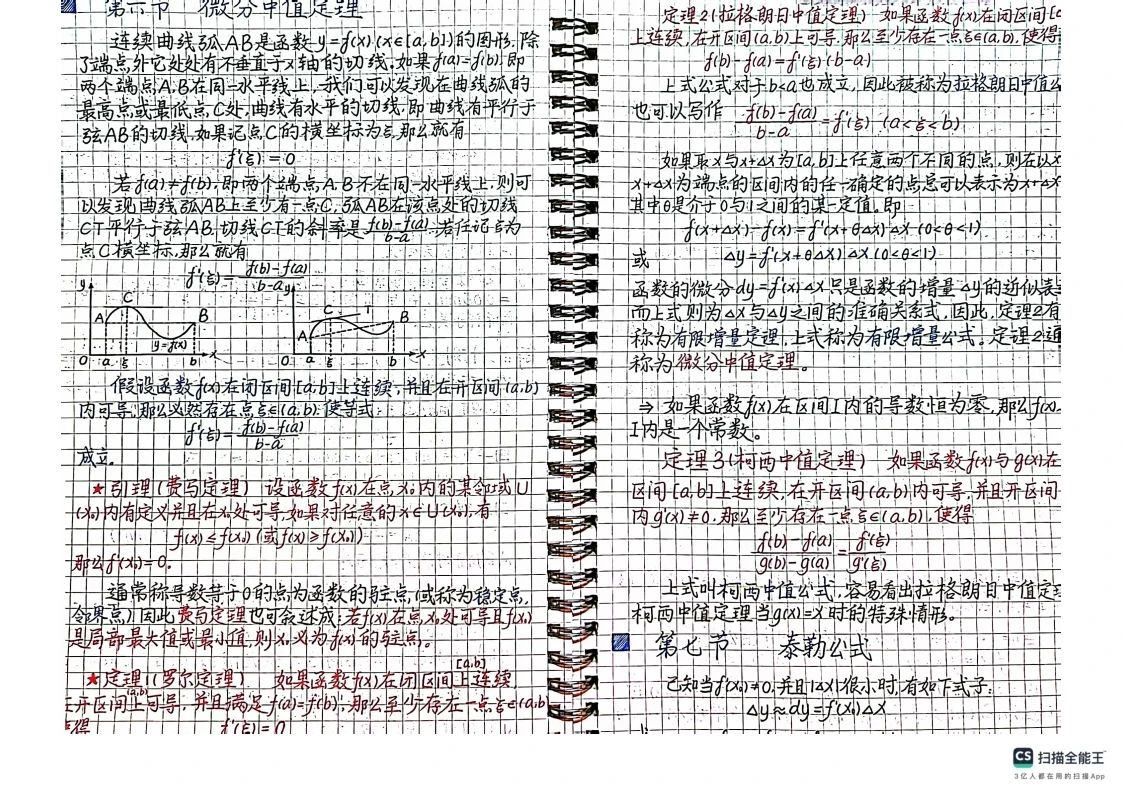 第六节 微分中值定理
连续曲线弧AB是函数y=f(x)(x∈[a,b])的图形.除
了端点外它处处有不垂直于x轴的切线.如果f(a)=f(b).即
两个端点A.B在同一水平线上,我们可以发现在曲线弧的
最高点或最低点C处,曲线有水平的切线.即曲线有平行于
弦AB的切线.如果记点C的横坐标为ξ,那么就有
f'(ξ)=0
若f(a)≠f(b),即两个端点A.B不在同一水平线上,则可
以发现曲线弧AB上至少有一点C,弧AB在该点处的切线
CT平行于弦AB.切线CT的斜率是 f(b)-f(a)/b-a .若任记ξ为
点C横坐标,那么就有
f'(ξ)= f(b)-f(a)/b-a
y C A B y=f(x) O a ξ b x
y C T A B O a ξ b x
假设函数f(x)在闭区间[a,b]上连续,并且在开区间(a,b)
内可导,那么必然存在点ξ∈(a,b).使等式
f'(ξ)= f(b)-f(a)/b-a
成立。
★引理(费马定理) 设函数f(x)在点x₀内的某邻域U
(x₀)内有定义并且在x₀处可导,如果对任意的x∈U(x₀),有
f(x)≤f(x₀)(或f(x)≥f(x₀))
那么f'(x₀)=0。
通常称导数等于0的点为函数的驻点,(或称为稳定点,
临界点)因此费马定理也可叙述成:若f(x)在点x₀处可导且f(x₀)
是局部最大值或最小值,则x₀必为f(x)的驻点。
★定理1(罗尔定理) 如果函数f(x)在闭区间[a,b]上连续,
在开区间(a,b)上可导,并且满足f(a)=f(b),那么至少存在一点ξ∈(a,b)
使得
f'(ξ)=0
定理2(拉格朗日中值定理) 如果函数f(x)在闭区间[a
上连续,在开区间(a,b)上可导.那么至少存在一点ξ∈(a,b).使得
f(b)-f(a)=f'(ξ)(b-a)
上式公式对于b<a也成立,因此被称为拉格朗日中值公
也可以写作 f(b)-f(a)/b-a =f'(ξ) (a<ξ<b)
如果取x与x+△x为[a,b]上任意两个不同的点,则在以x
x+△x为端点的区间内的任一确定的点总可以表示为x+△x
其中θ是介于0与1之间的某一定值。即
f(x+△x)-f(x)=f'(x+θ△x)△x(0<θ<1)
或 △y=f'(x+θ△x)△x(0<θ<1)
函数的微分dy=f'(x)△x只是函数的增量△y的近似表
而上式则为△x与△y之间的准确关系式,因此,定理2有
称为有限增量定理,上式称为有限增量公式。定理2通
称为微分中值定理。
⇒ 如果函数f(x)在区间I内的导数恒为零,那么f(x)
I内是一个常数。
定理3(柯西中值定理) 如果函数f(x)与g(x)在
区间[a,b]上连续,在开区间(a,b)内可导,并且开区间
内g'(x)≠0.那么至少存在一点ξ∈(a,b),使得
f(b)-f(a)/g(b)-g(a) = f'(ξ)/g'(ξ)
上式叫柯西中值公式,容易看出拉格朗日中值定
柯西中值定理当g(x)=x时的特殊情形。
第七节 泰勒公式
已知当f'(x₀)≠0,并且|△x|很小时,有如下式子:
△y≈dy=f'(x₀)△x
CS 扫描全能王
3亿人都在用的扫描App